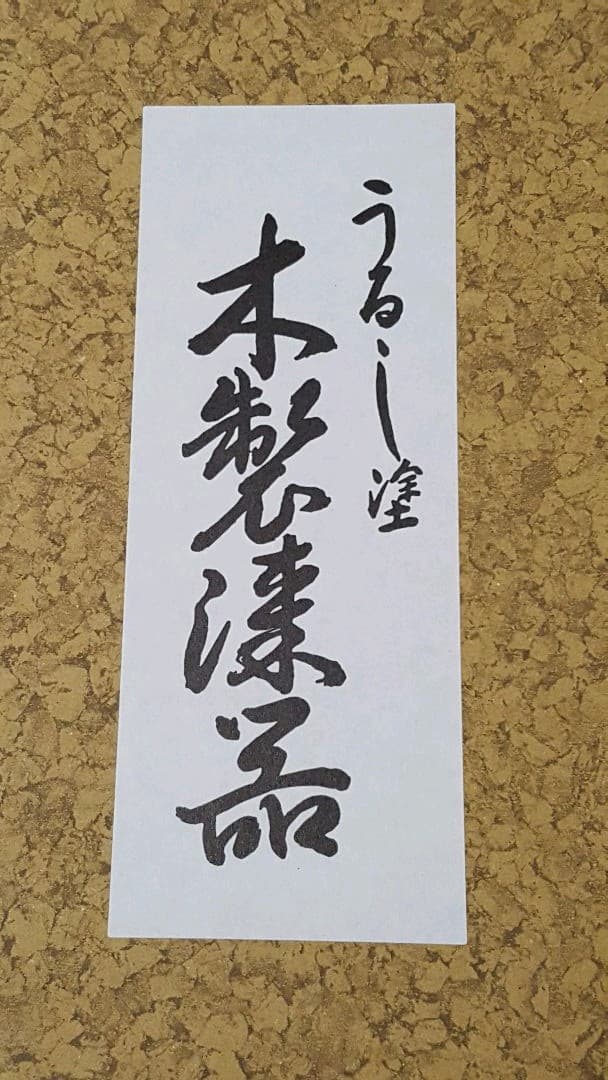 うるし塗
木製漆器